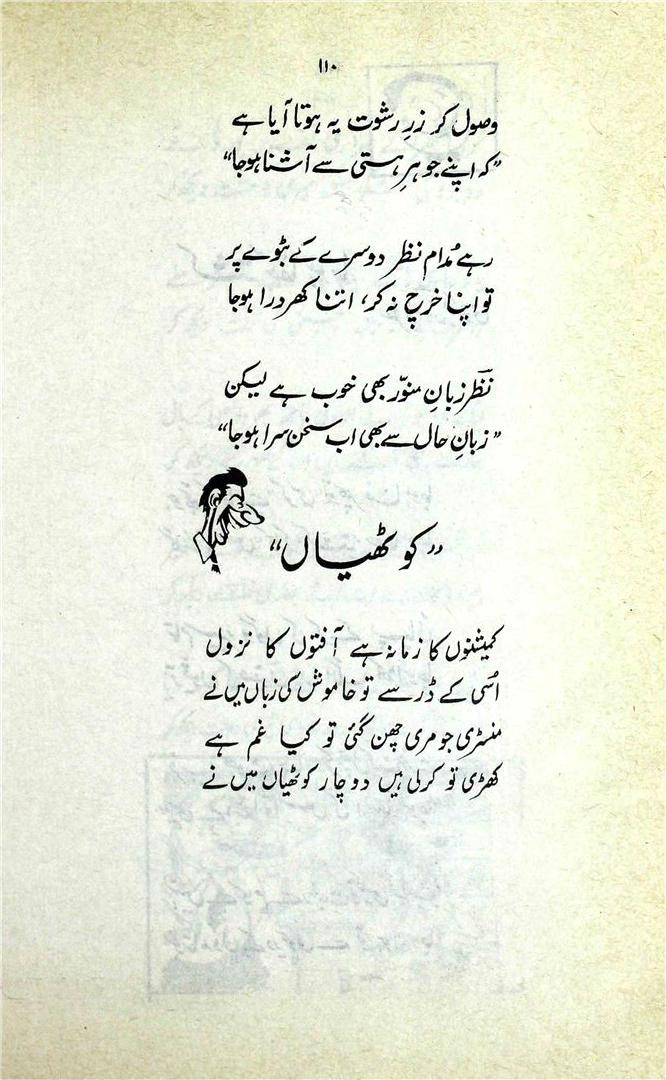 ۱۱۰
وصول کر زرِ رشوت یہ ہوتا آیا ہے
”کہ اپنے جوہرِ ہستی سے آشنا ہو جا“
رہے مُدام نظر دوسرے کے بٹوے پر
تو اپنا خرچ نہ کر، اتنا کھردرا ہو جا
نظرؔ زبانِ منوّر بھی خوب ہے لیکن
”زبانِ حال سے بھی اب سخن سرا ہو جا“
”کوٹھیاں“
کمیشنوں کا زمانہ ہے آفتوں کا نزول
اُسی کے ڈر سے تو خاموش کی زباں میں نے
منسٹری جو مری چھن گئی تو کیا غم ہے
کھڑی تو کر لی ہیں دو چار کوٹھیاں میں نے